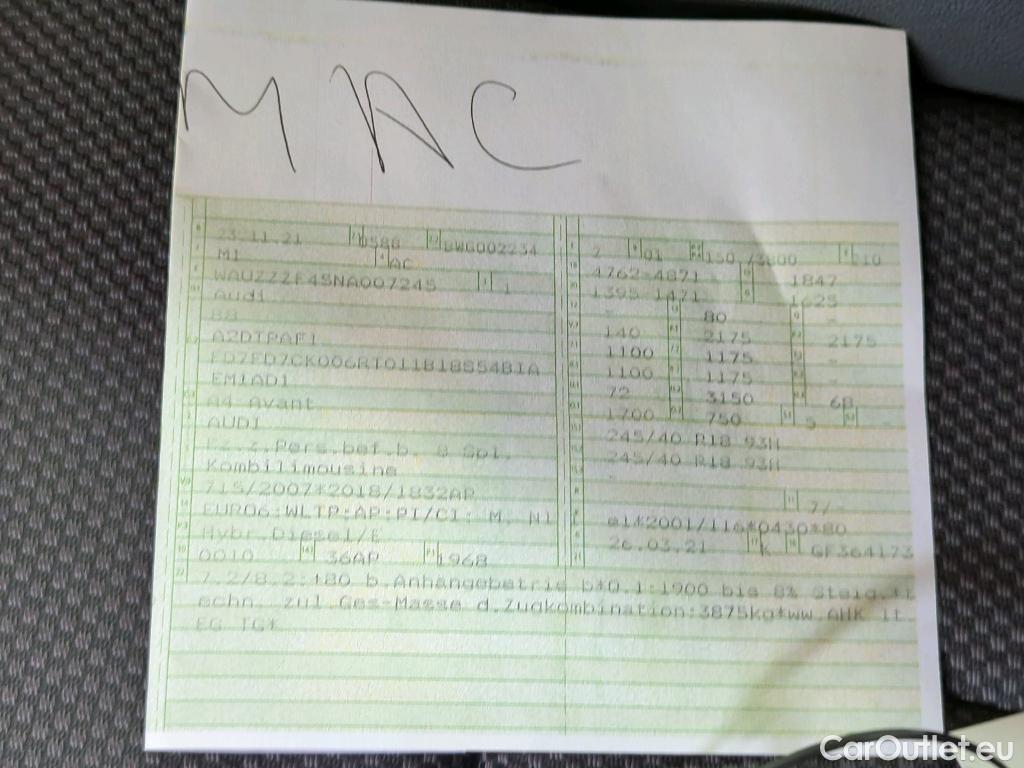 MAC
23.11.21 0588 BWG002234
M1 AC
WAUZZZF45NA007245 1
Audi
B8
A2DTPAF1
FD7FD7CK006RTO11B18S54BIA
EM1AD1
A4 Avant
AUDI
Fz.z.Pers.bef.b. 8 Spl.
Kombilimousine
715/2007*2018/1832AP
EURO6;WLTP;AP;PI/CI; M, N1
Hybr.Diesel/E
0010 36AP 1968
2 01 150 /3800 210
4762-4871 1847
1395-1471 1625
- 80 -
140 2175 2175
1100 1175 -
1100 1175 -
72 3150 68
1700 750 5 -
245/40 R18 93H
245/40 R18 93H
-
7/-
e1*2001/116*0430*80
26.03.21 K GF364173
7.2/8.2:+80 b.Anhängebetrieb*O.1:1900 bis 8% Steig.*t
echn. zul.Ges-Masse d.Zugkombination:3875kg*ww.AHK lt.
EG-TG*
CarOutlet.eu